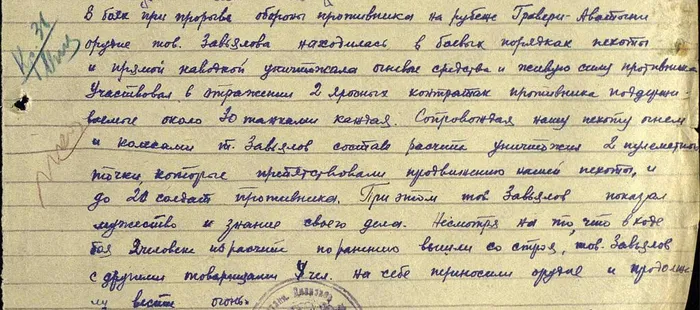 В боях при прорыве обороны противника на рубеже Гравери-Авотыни
орудие тов. Завьялова находилась в боевых порядках пехоты
и прямой наводкой уничтожала огневые средства и живую силу противника
Участвовал в отражении 2 яросных контратак противника поддержи-
ваемые около 30 танками каждая. Сопровождая нашу пехоту огнем
и колесами т. Завьялов составе расчета уничтожил 2 пулеметных
точки которые препятствовали продвижению нашей пехоты, и
до 20 солдат противника. При этом тов. Завьялов показал
мужество и знание своего дела. Несмотря на то, что в ходе
боя 2 человека из расчета по ранению вышли со строя, тов. Завьялов
с другими товарищами чел. на себе переносили орудие и продолжа-
ли вести огонь.